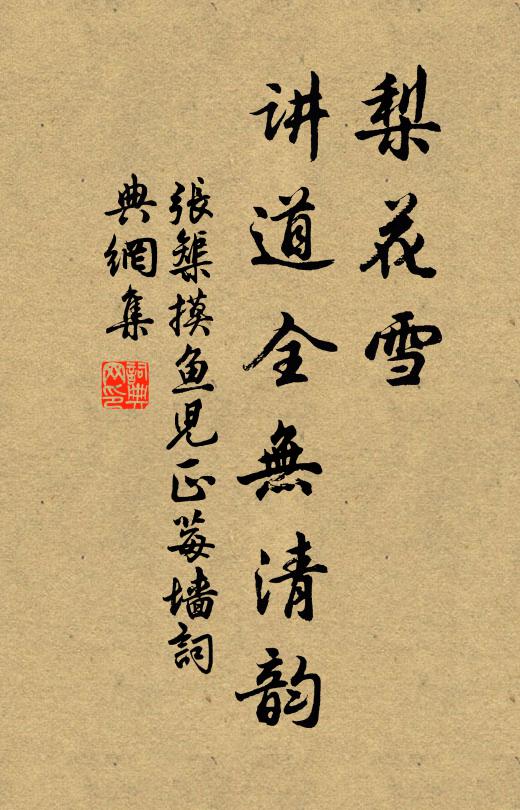 梨花雪
讲道全無清韵
張榘摸魚児正莓墙詞
典網集
詞典网印